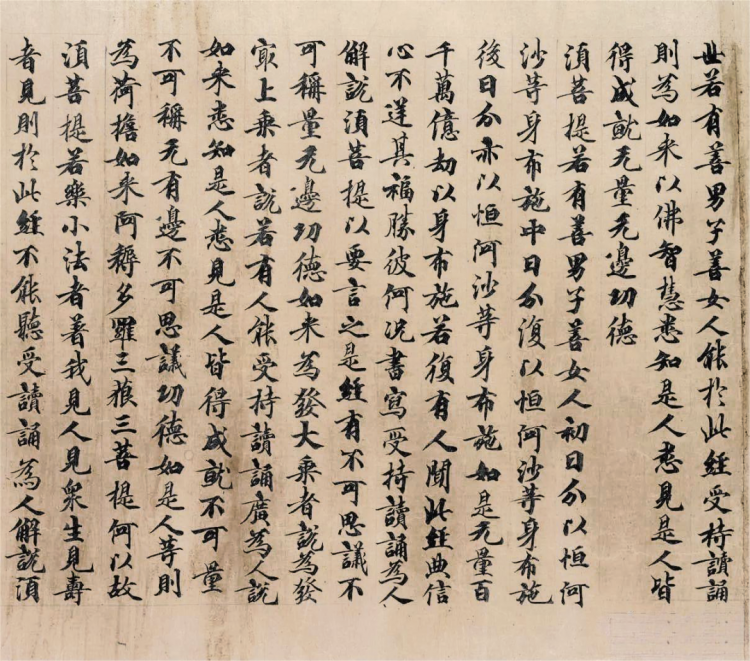 世若有善男子善女人能於此經受持讀誦
則為如来以佛智慧悉知是人悉見是人皆
得成就无量无邊功德
須菩提若有善男子善女人初日分以恒河
沙等身布施中日分復以恒河沙等身布施
後日分亦以恒河沙等身布施如是无量百
千萬億劫以身布施若復有人聞此經典信
心不逆其福勝彼何況書寫受持讀誦為人
解說須菩提以要言之是經有不可思議不
可稱量无邊功德如来為發大乘者說為發
冣上乘者說若有人能受持讀誦廣為人說
如来悉知是人悉見是人皆得成就不可量
不可稱无有邊不可思議功德如是人等則
為荷擔如来阿耨多羅三藐三菩提何以故
須菩提若樂小法者著我見人見衆生見壽
者見則於此經不能聽受讀誦為人解說須